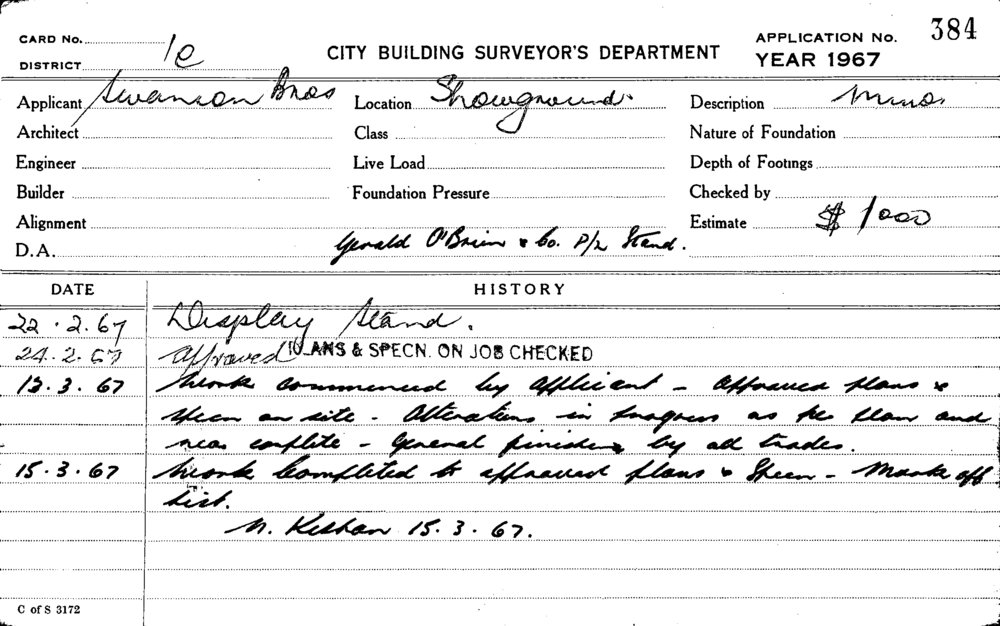 CARD No.
DISTRICT 1c
CITY BUILDING SURVEYOR'S DEPARTMENT
APPLICATION No. 384
YEAR 1967
Applicant Swanson Bros Location Showground. Description Minor
Architect Class Nature of Foundation
Engineer Live Load Depth of Footings
Builder Foundation Pressure Checked by
Alignment Estimate $ 1000
D.A. Gerald O'Brien & Co. P/L Stand.
DATE HISTORY
22.2.67 Display Stand.
24.2.67 approved PLANS & SPECN. ON JOB CHECKED
13.3.67 Work commenced by applicant - approved plans &
specn on site - Alterations in progress as per plan and
near complete - General finishing by all trades.
15.3.67 Work completed to approved plans & Specn - Mark off
list.
15.3.67.
C of S 3172